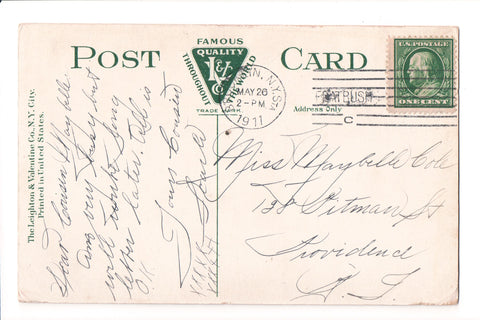 POST CARD
FAMOUS
QUALITY
L & V
Co
THROUGHOUT THE WORLD
TRADE MARK
N.Y. STA
MAY 26
2-PM
1911
FLATBUSH
C
U.S. POSTAGE
ONE CENT
Address Only
The Leighton & Valentine Co., N.Y. City.
Printed in United States.
Dear Cousin Maybelle
Am very busy but
will write long
letter later. All is
O.K.
Your Cousin
Miss Maybelle Cole
Pitman St
Providence
R. I.